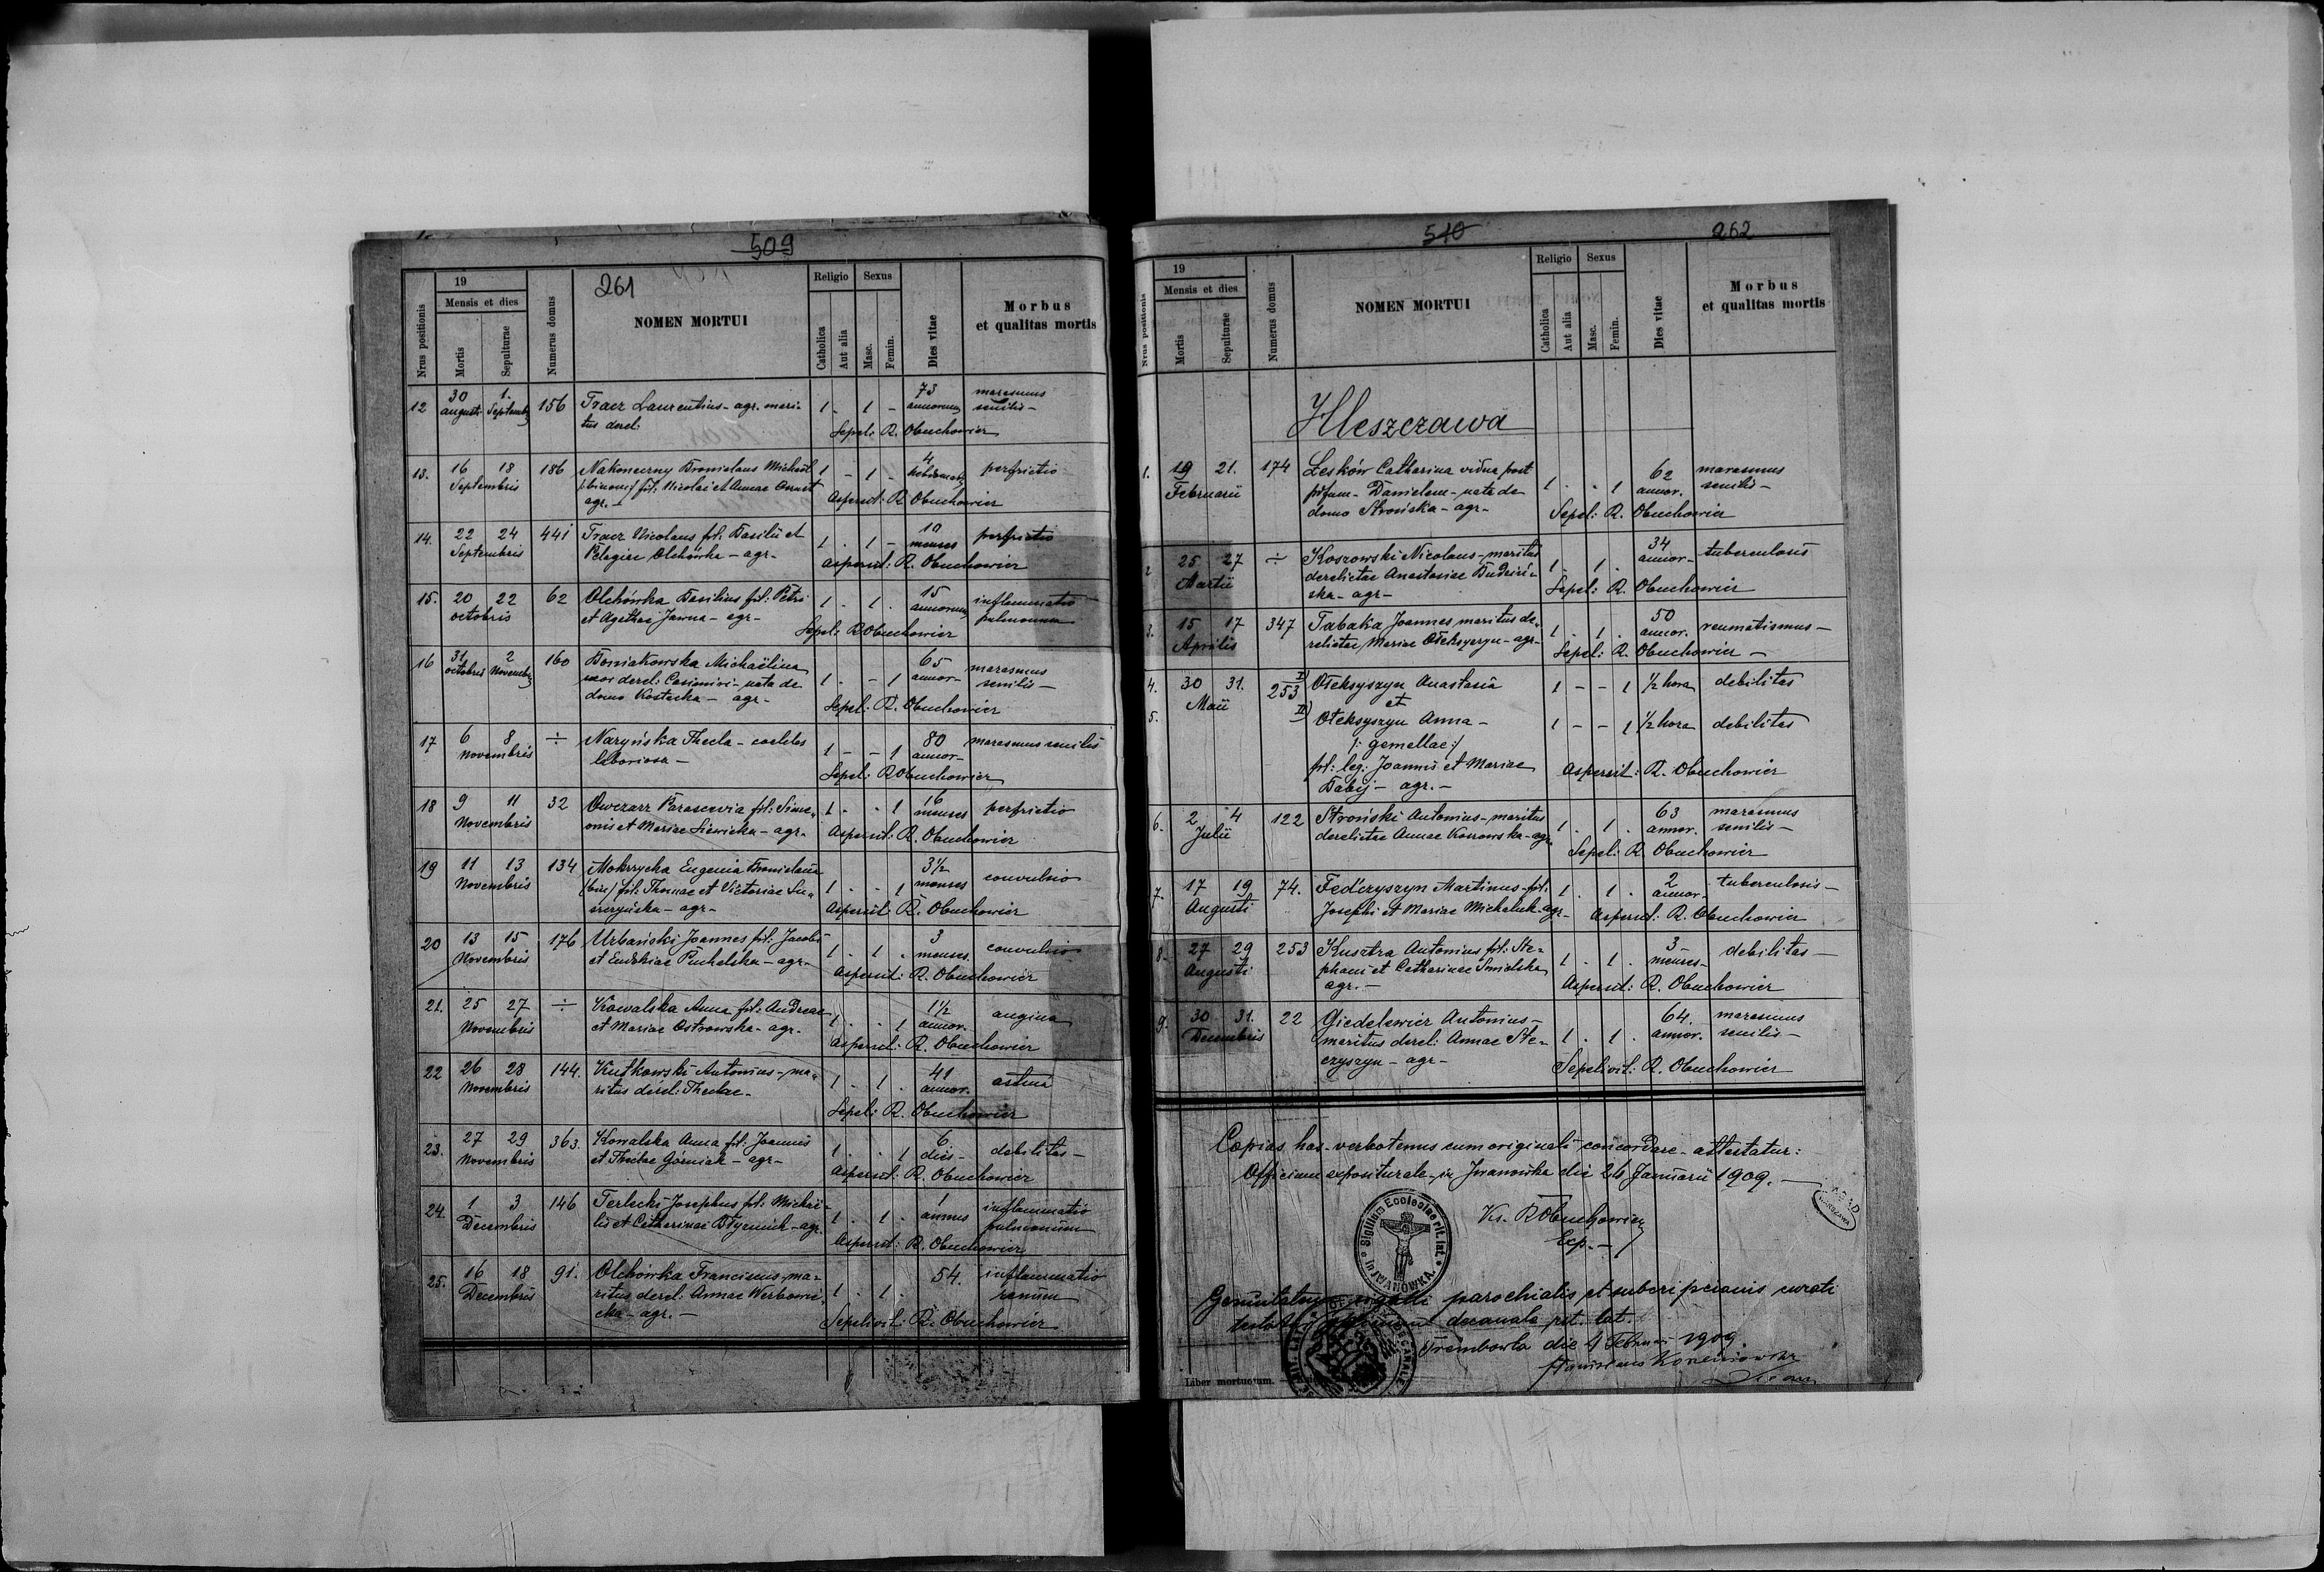 509
261
Nrus positionis
19
Mensis et dies
Mortis
Sepulturae
Numerus domus
NOMEN MORTUI
Religio
Catholica
Aut alia
Sexus
Masc.
Femin.
Dies vitae
Morbus
et qualitas mortis
12 30 augusti 1. Septemb 156 Tracz Laurentius - agr. mari- 1 - 1 - 73 annorum marasmus senilis -
tus derel:
Sepel: R. Obuchowicz
13. 16 18 Septembris 186 Nakoneczny Bronislaus Michaël 1 - 1 - 4 hebdomad perfrictio
/:binom:/ fil: Nicolai et Annae
agr. - Aspersit: R. Obuchowicz
14. 22 24 Septembris 441 Tracz Nicolaus fil: Basilii et 1 . 1 - 10 menses perfrictio
Pelagiae Olchówka - agr-
aspersit: R. Obuchowicz
15. 20 22 octobris 62 Olchówka Basilius fil: Petri 1 . 1 . 15 annorum inflammatio pulmonum
et Agathae Jawna - agr-
Sepel: R Obuchowicz
16 31 octobris 2 Novemb 160 Boniakowska Michaëlina 1 . - 1 65 annor- marasmus senilis -
uxor derel: Casimiri - nata de
domo Kostecka - agr-
Sepel: R. Obuchowicz
17 6 8 Novembris ÷ Naryńska Thecla - caelebs 1 - - 1 80 annor- marasmus senilis
laboriosa -
Sepel: R Obuchowicz
18 9 11 Novembris 32 Owczarz Parascevia fil: Sime- 1 . . 1 16 menses perfrictio
onis et Mariae Siewicka - agr-
Aspersit: R. Obuchowicz
19 11 13 Novembris 134 Mokrzycka Eugenia Bronislava 1 . . 1 3½ menses convulsio
/bin/ fil: Thomae et Victoriae
- agr-
Aspersit: R. Obuchowicz
20 13 15 Novembris 176 Urbański Joannes fil: Jacobi 1 . 1 . 3 menses. convulsio
et Eudokiae Puchalska - agr-
Aspersit: R. Obuchowicz
21. 25 27 Novembris ÷ Kowalska Anna fil: Andreae 1 . . 1 1½ annor. angina
et Mariae Ostrowska - agr-
Aspersit: R. Obuchowicz
22 26 28 Novembris 144. Kutkowski Antonius - ma- 1 . 1 . 41 annor. astma
ritus derel: Theclae-
Sepel: R. Obuchowicz
23. 27 29 Novembris 363. Kowalska Anna fil: Joannis 1 . . 1 6 dies - debilitas -
et Theclae Górniak - agr-
Aspersit: R. Obuchowicz
24. 1 3 Decembris 146 Terlecki Josephus fil: Michaë- 1 . 1 . 1 annus inflammatio pulmonum
lis et Catharinae - agr.
Aspersit: R. Obuchowicz
25. 16 18 Decembris 91. Olchówka Franciscus - ma- 1 . 1 . 54. inflammatio renum
ritus derel: Annae Werbowie-
cka - agr. -
Sepelivit: R. Obuchowicz
510
262
Nrus positionis
19
Mensis et dies
Mortis
Sepulturae
Numerus domus
NOMEN MORTUI
Religio
Catholica
Aut alia
Sexus
Masc.
Femin.
Dies vitae
Morbus
et qualitas mortis
Hleszczawa
1. 19 21. Februarii 174 Leśków Catharina vidua post 1 . . 1 62 annor. marasmus senilis -
Danielem - nata de
domo Strońska - agr-
Sepel: R. Obuchowicz
2 25 27 Martii ÷ Koszowski Nicolaus - maritus 1 . 1 . 34 annor- tuberculosis
derelictae Anastasiae Budziń-
ska - agr-
Sepel: R. Obuchowicz
3. 15 17 Aprilis 347 Tabaka Joannes maritus de- 1 . 1 . 50 annor. reumatismus -
relictae Mariae Ołeksyszyn - agr-
Sepel: R. Obuchowicz -
4. 30 31. Maii 253 I) Ołeksyszyn Anastasia 1 - - 1 ½ hora debilitas
et
5. II) Ołeksyszyn Anna - 1 - - 1 ½ hora debilitas
/: gemellae :/
fil: leg: Joannis et Mariae
Babij - agr. -
Aspersit: R. Obuchowicz
6. 2 4 Julii 122 Stroński Antonius - maritus 1 . 1 . 63 annor. marasmus senilis -
derelictae Annae Kossowska - agr-
Sepel: R. Obuchowicz
7. 17 19 Augusti 74. Fedczyszyn Martinus - fil: 1 . 1 . 2 annor. tuberculosis -
Josephi et Mariae Michaluk - agr-
Aspersit: R. Obuchowicz
8. 27 29 Augusti 253 Kusztra Antonius fil: Ste- 1 . 1 . 3 menses- debilitas -
phani et Catharinae Smolska
agr. -
Aspersit: R. Obuchowicz
9. 30 31. Decembris 22 Giedelewicz Antonius - 1 . 1 . 64. annor. marasmus senilis -
maritus derel: Annae Ste-
czyszyn - agr-
Sepelivit: R. Obuchowicz
Copias has verbotenus cum originali concordare attestatur:
Officium expositurale in Iwanówka die 26 Januarii 1909. -
Ks. R Obuchowicz
Exp. -
Sigillum Ecclesiae rit. lat. in IWANÓWKA.
parochialis et subscripcionis curati
decanale rit. lat.
Trembowla die 4 Februarii 1909.
Stanislaus
DECANALE
Liber mortuorum.